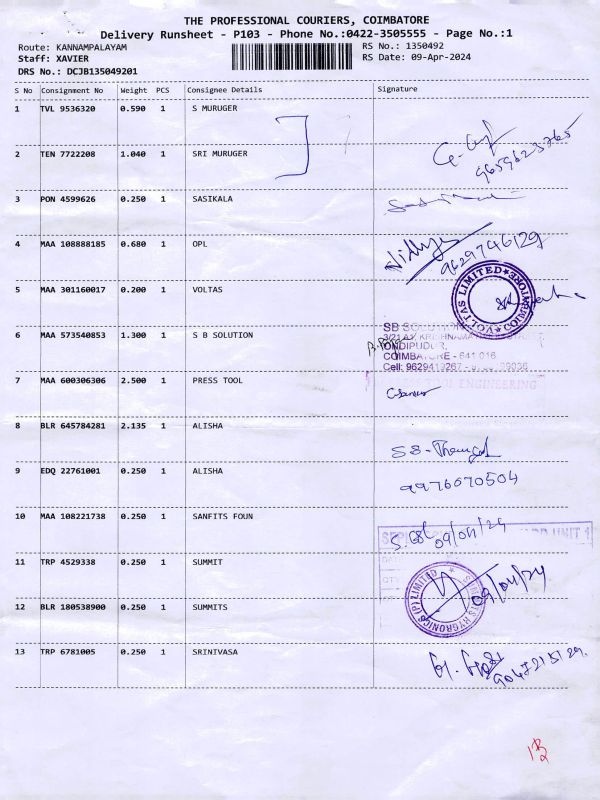 THE PROFESSIONAL COURIERS, COIMBATORE
Delivery Runsheet - P103 - Phone No.:0422-3505555 - Page No.:1
Route: KANNAMPALAYAM RS No.: 1350492
Staff: XAVIER RS Date: 09-Apr-2024
DRS No.: DCJB135049201
S No Consignment No Weight PCS Consignee Details Signature
1 TVL 9536320 0.590 1 S MURUGER
2 TEN 7722208 1.040 1 SRI MURUGER
9659623765
3 PON 4599626 0.250 1 SASIKALA
4 MAA 108888185 0.680 1 OPL
9629746129
5 MAA 301160017 0.200 1 VOLTAS
VOLTAS LIMITED COIMBATORE
6 MAA 573540853 1.300 1 S B SOLUTION
SB SOLUTION
ONDIPUDUR,
COIMBATORE - 641 016
Cell: 9629419267
7 MAA 600306306 2.500 1 PRESS TOOL
TOOL ENGINEERING
8 BLR 645784281 2.135 1 ALISHA
9 EDQ 22761001 0.250 1 ALISHA
9976070504
10 MAA 108221738 0.250 1 SANFITS FOUN
09/04/24
UNIT 1
11 TRP 4529338 0.250 1 SUMMIT
09/04/24
12 BLR 180538900 0.250 1 SUMMITS
HYGRONICS (P) LIMITED
13 TRP 6781005 0.250 1 SRINIVASA
9047215129